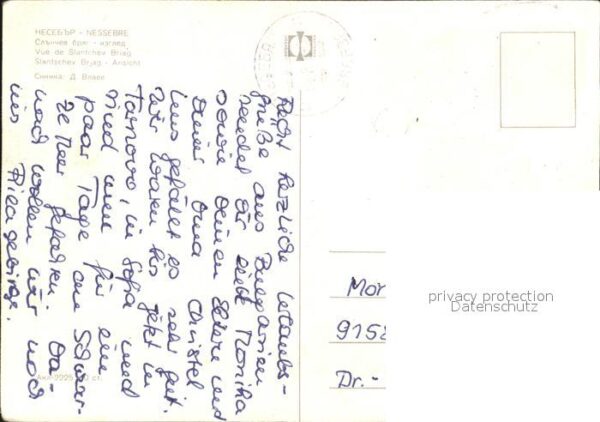 НЕСЕБЪР - NESSEBRE
Слънчев бряг - изглед
Vue de Slantchev Briag
Slantschev Brjag - Ansicht
Снимка: Д. Влаев
Recht herzliche Urlaubs-
grüße aus Bulgarien
sendet Dir liebe Monika
sowie Deinen Eltern und
Deiner Oma Christel
Uns gefällt es sehr gut.
Wir waren bis jetzt in
Tarnovo, in Sofia und
sind nun für ein
paar Tage ans Schwar-
ze Meer gefahren. Da-
nach wollen wir noch
ins Rilagebirge.
Mor
9152
Dr.-
privacy protection
Datenschutz